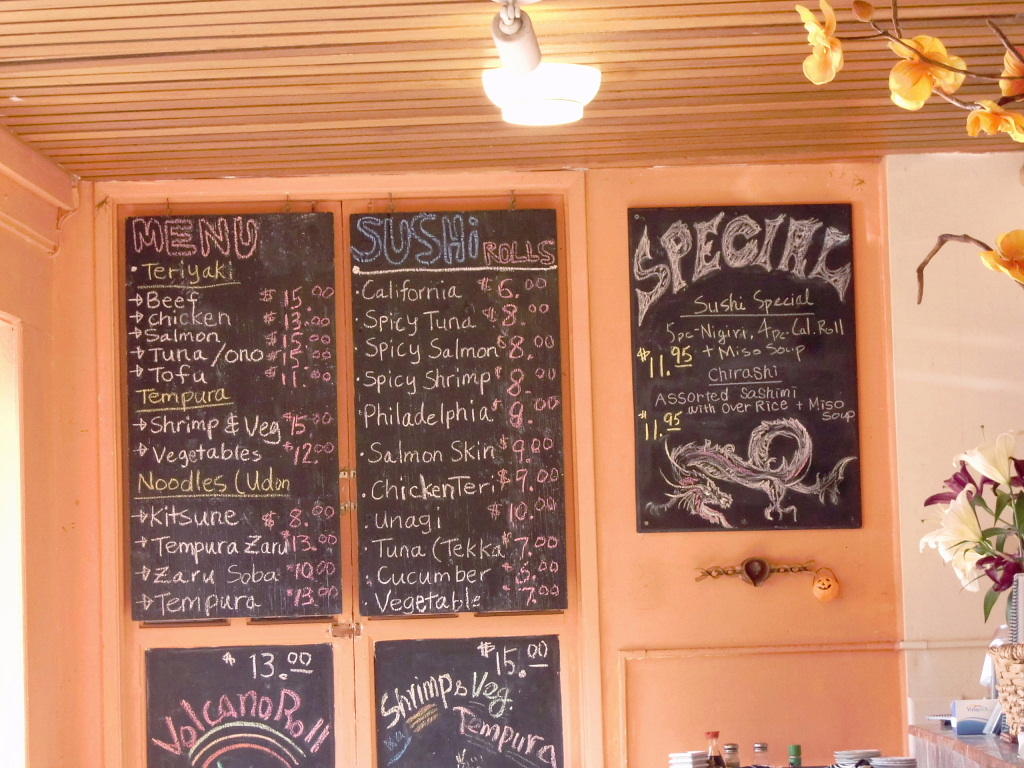 MENU
Teriyaki
→Beef $15.00
→chicken $13.00
→Salmon $15.00
→Tuna/ono $15.00
→Tofu $11.00
Tempura
→Shrimp & Veg $15.00
→Vegetables $12.00
Noodles (Udon
→Kitsune $8.00
→Tempura Zaru $13.00
→Zaru Soba $10.00
→Tempura $13.00
SUSHi ROLLS
·California $6.00
·Spicy Tuna $8.00
·Spicy Salmon $8.00
·Spicy Shrimp $8.00
·Philadelphia $9.00
·Salmon Skin $9.00
·Chicken Teri $7.00
·unagi $10.00
·Tuna (Tekka $7.00
·Cucumber $5.00
·Vegetable 7.00
SPECIAL
Sushi Special
5pc-Nigiri, 4pc Cal. Roll
+ Miso Soup
$11.95
Chirashi
Assorted Sashimi
with over Rice + Miso Soup
$11.95
$13.00
Volcano Roll
$15.00
Shrimp & Veg.
Tempura